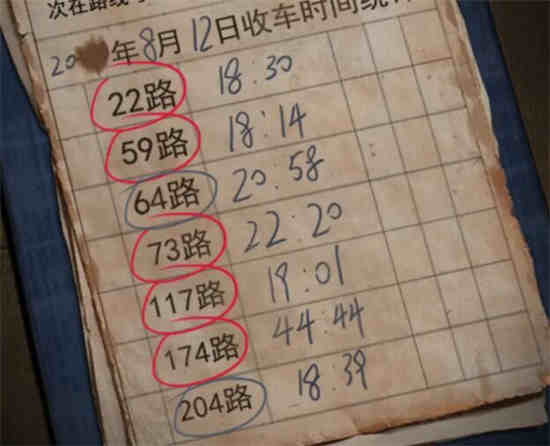 次在路线
20 年8月12日收车时间统
22路 18:30
59路 18:14
64路 20:58
73路 22:20
117路 19:01
174路 44:44
204路 18:39